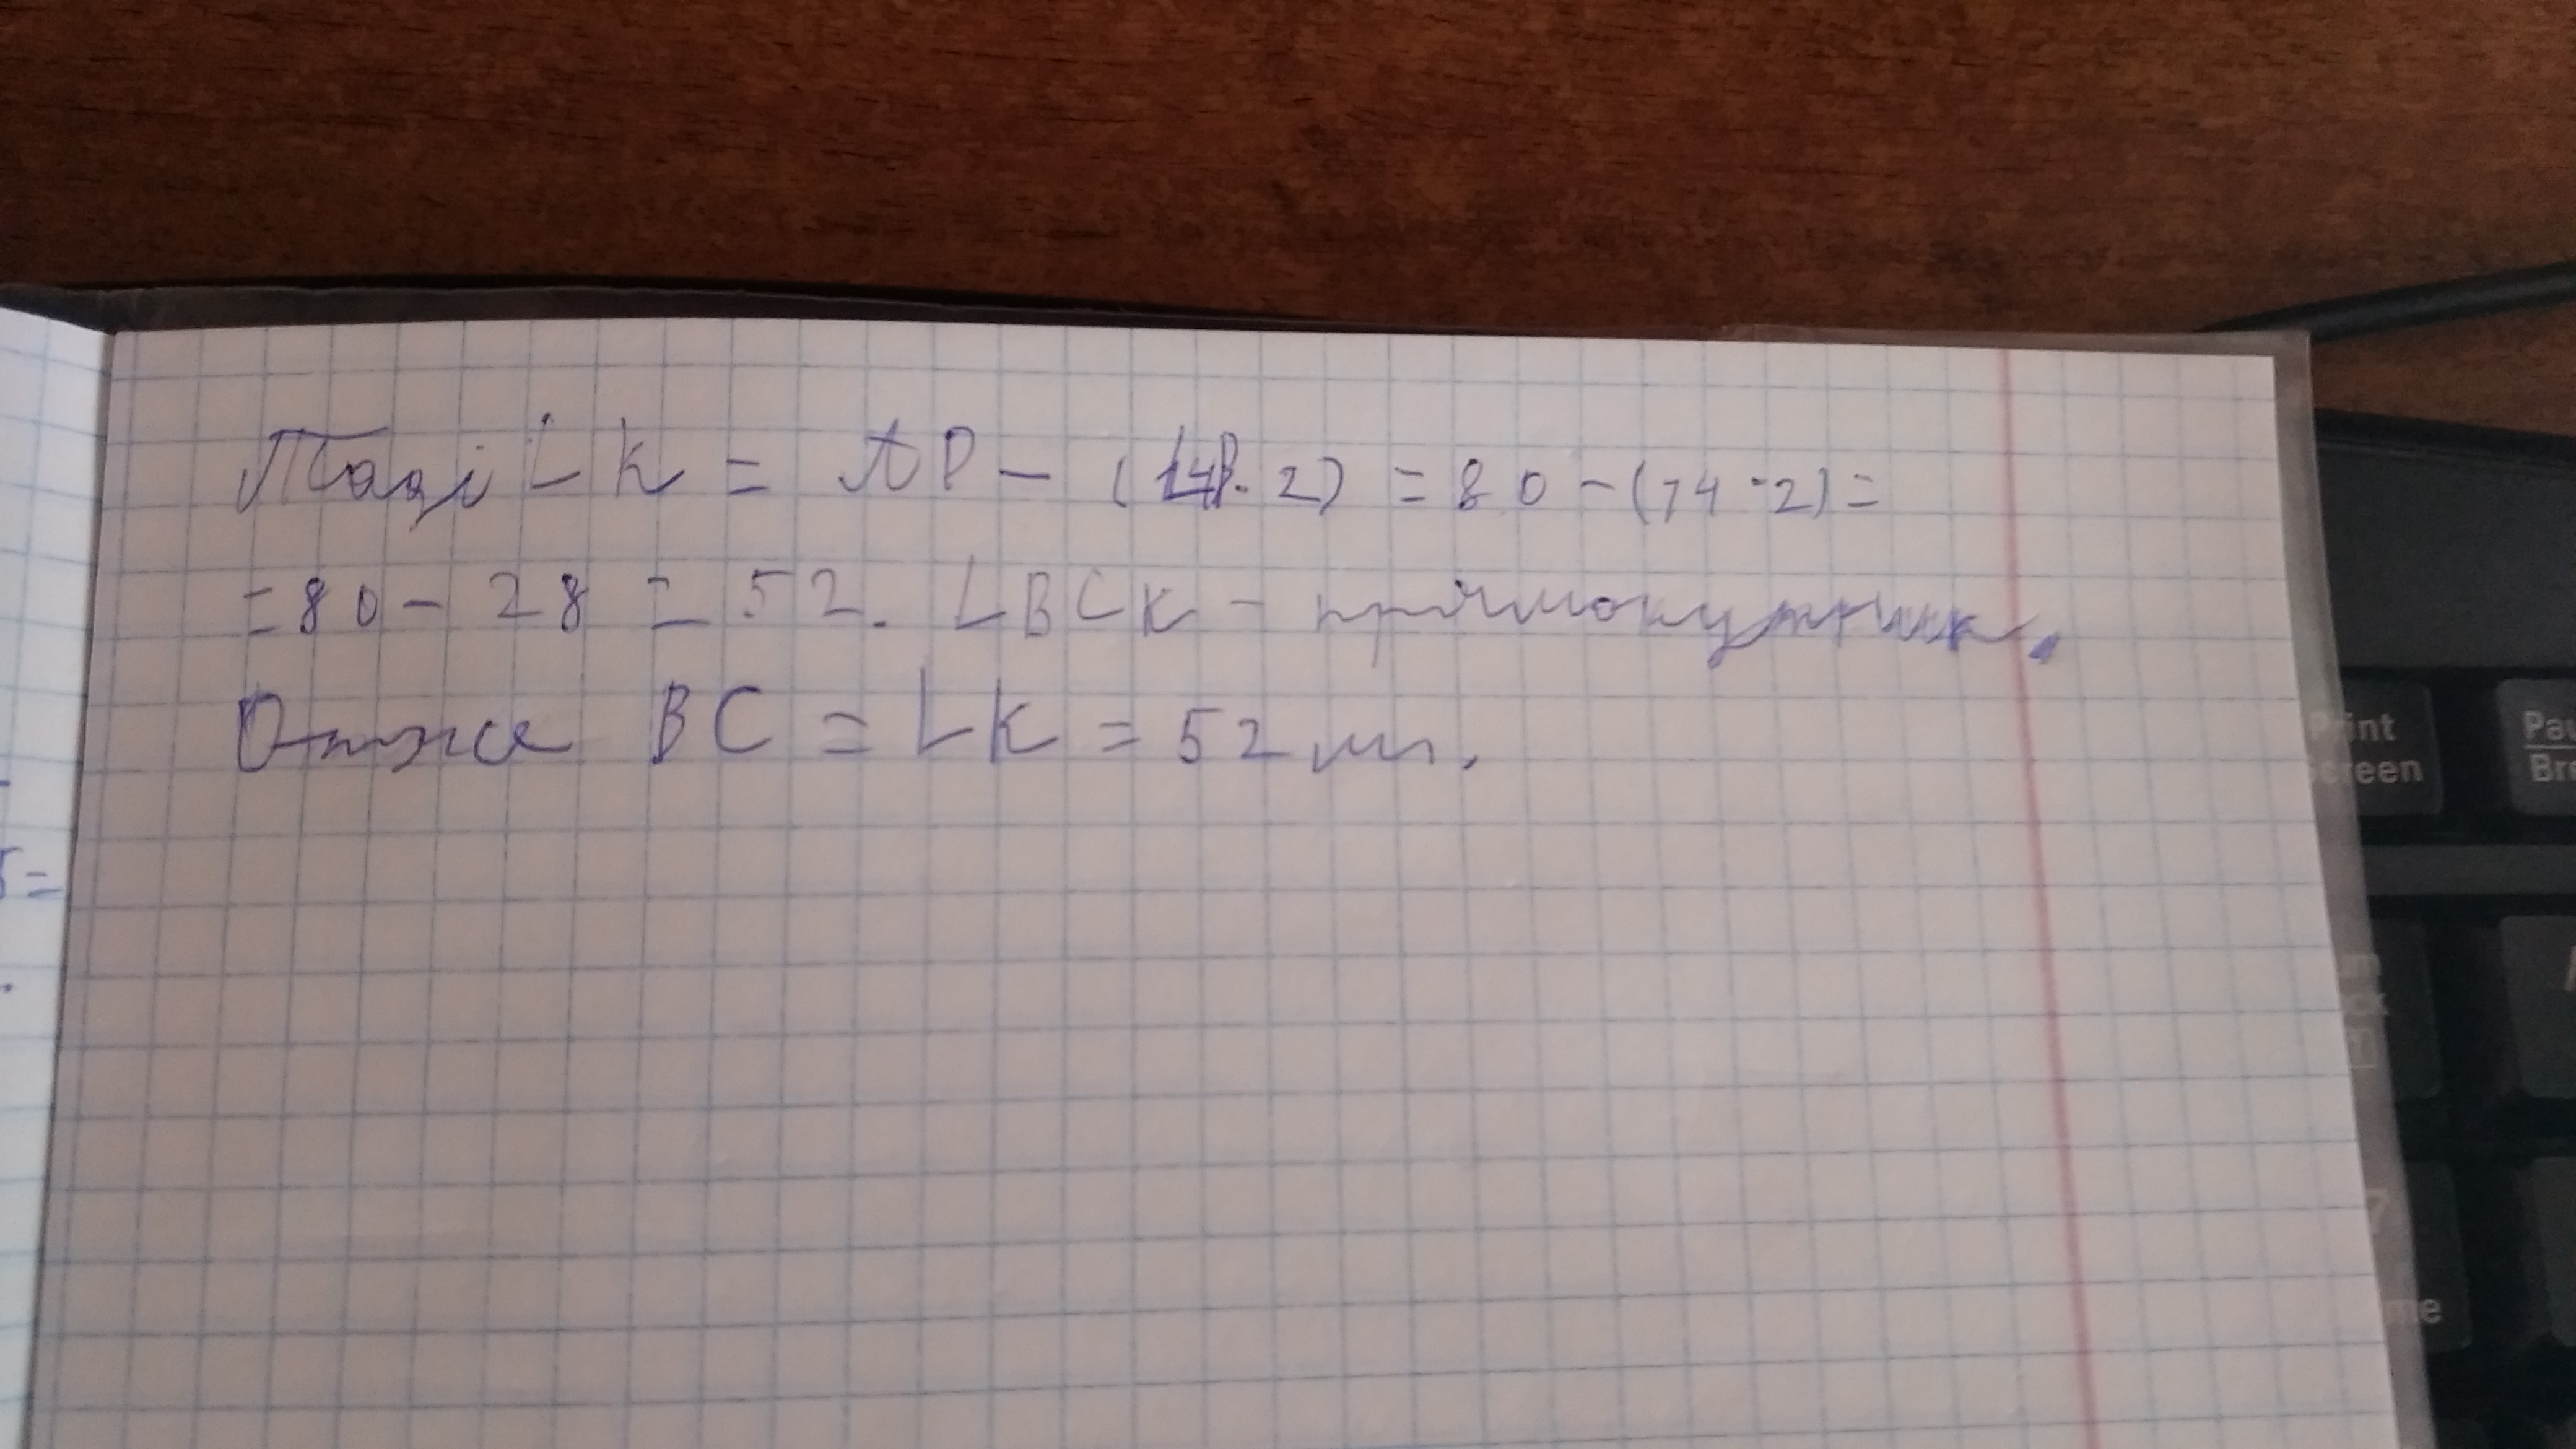 Тоді LK = AD - ( . 2) = 80 - (14 · 2) =
= 80 - 28 = 52. LBCK - прямокутник.
Отже BC = LK = 52 м.
5=
Print Screen
Pau
Bre
me
7